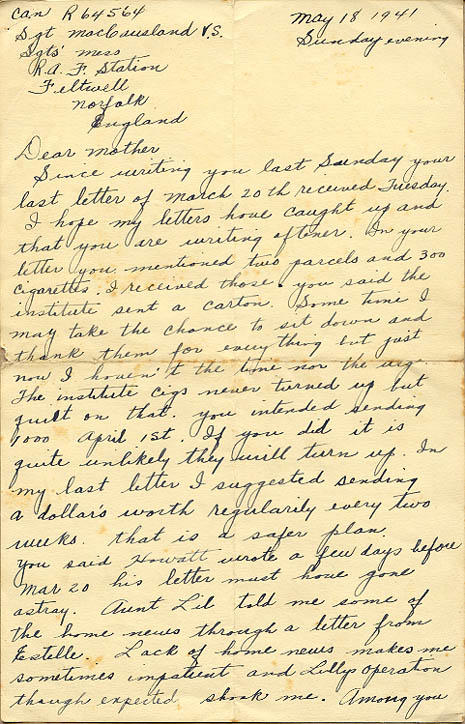 Can R64564
May 18 1941
Sgt MacCausland V.S.
Sunday evening
Sgts' Mess
R.A.F. Station
Feltwell
Norfolk
England
Dear Mother
Since writing you last Sunday your
last letter of March 20th received Tuesday.
I hope my letters have caught up and
that you are writing oftener. In your
letter you mentioned two parcels and 300
cigarettes. I received those. you said the
institute sent a carton. Some time I
may take the chance to sit down and
thank them for everything but just
now I haven't the time nor the urge.
The institute cigs never turned up but
on that. you intended sending
1000 April 1st. If you did it is
quite unlikely they will turn up. In
my last letter I suggested sending
a dollar's worth regularily every two
weeks. that is a safer plan.
You said Howatt wrote a few days before
Mar 20 his letter must have gone
astray. Aunt Lil told me some of
the home news through a letter from
Estelle. Lack of home news makes me
sometimes impatient and Lillys operation
though expected shook me. Among you